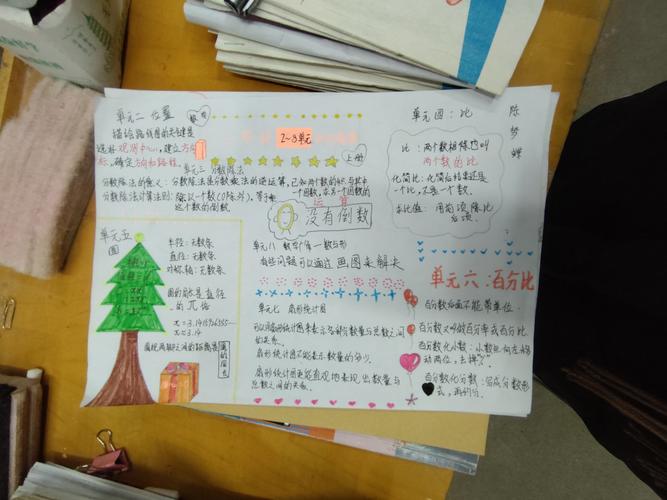 单元二 位置
描绘路线图的关键是
选择观测中心,建立方向
标,确定方向和路程。
2~8单元
上册
单元三 分数除法
分数除法的意义:分数除法是分数乘法的逆运算,已知两个数的积与其中
一个因数,求另一个因数的
运算
分数除法计算法则:除以一个数(0除外),等于乘
这个数的倒数
没有倒数
单元四:比
陈梦婵
比:两个数相除也叫
两个数的比
化简比:化简后结果还是
一个比,不是一个数。
求比值:用前项除比
后项
单元五
圆
半径:无数条
直径:无数条
对称轴:无数条
圆的周长是直径
的π倍
π≈3.14
单元八 数学广角—数与形
有些问题可以通过画图来解决
单元七 扇形统计图
可以用扇形统计图来表示各部分数量与总数之间
的关系。
扇形统计图不能表示数量的多少。
扇形统计图更能直观地表现出数量与
总数之间的关系。
单元六:百分比
百分数后面不能带单位.
百分数又叫做百分率或百分比.
百分数化小数:小数点向左移
动两位,去掉"%"
百分数化分数:写成分数形
式,再约分.